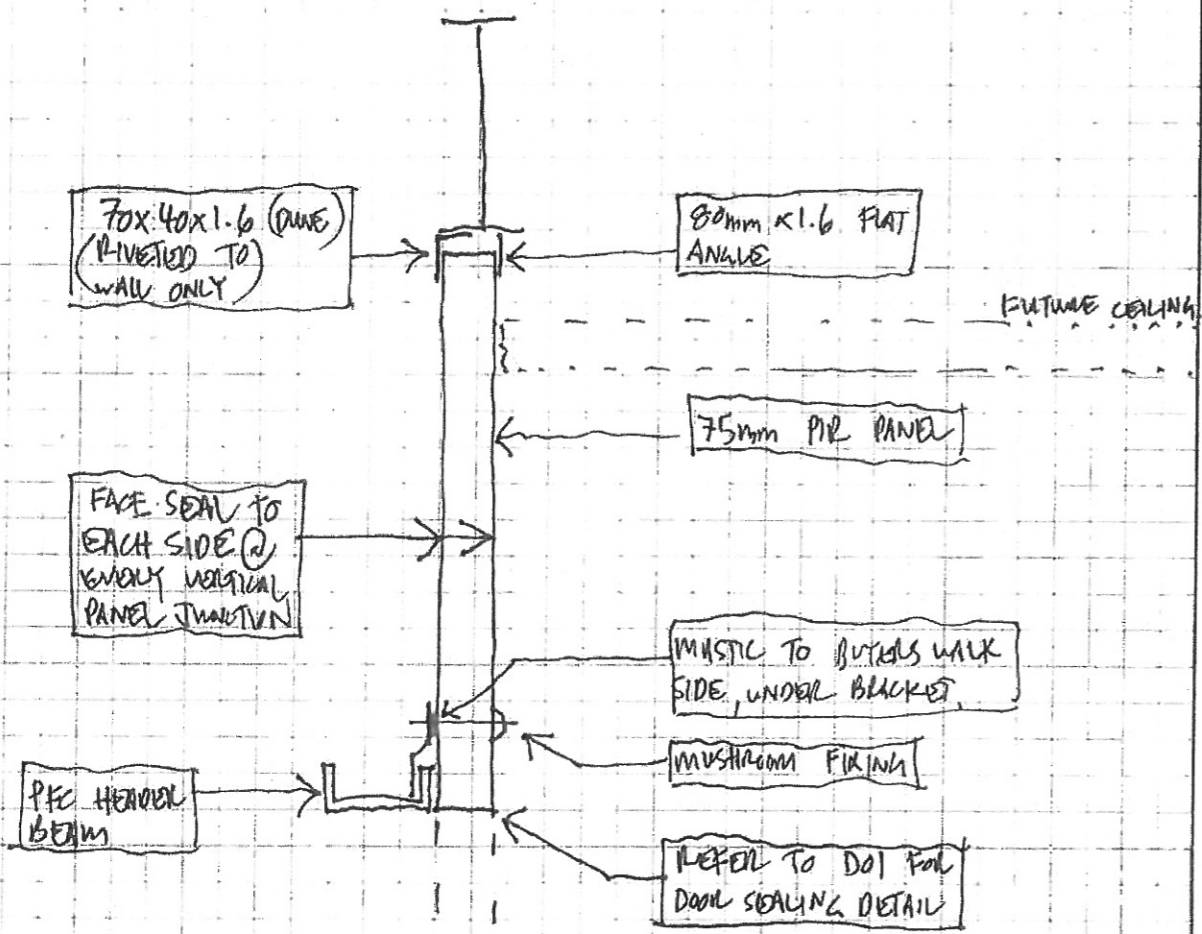 70x40x1.6
(RIVETED TO
WALL ONLY)
80mm x1.6 FLAT
ANGLE
FUTURE CEILING
75mm PIR PANEL
FACE SEAL TO
EACH SIDE @
EVERY VERTICAL
PANEL JUNCTION
MASTIC TO BUYERS WALK
SIDE, UNDER BRACKET
MUSHROOM FIXING
PFC HEADER
BEAM
REFER TO D01 FOR
DOOR SEALING DETAIL